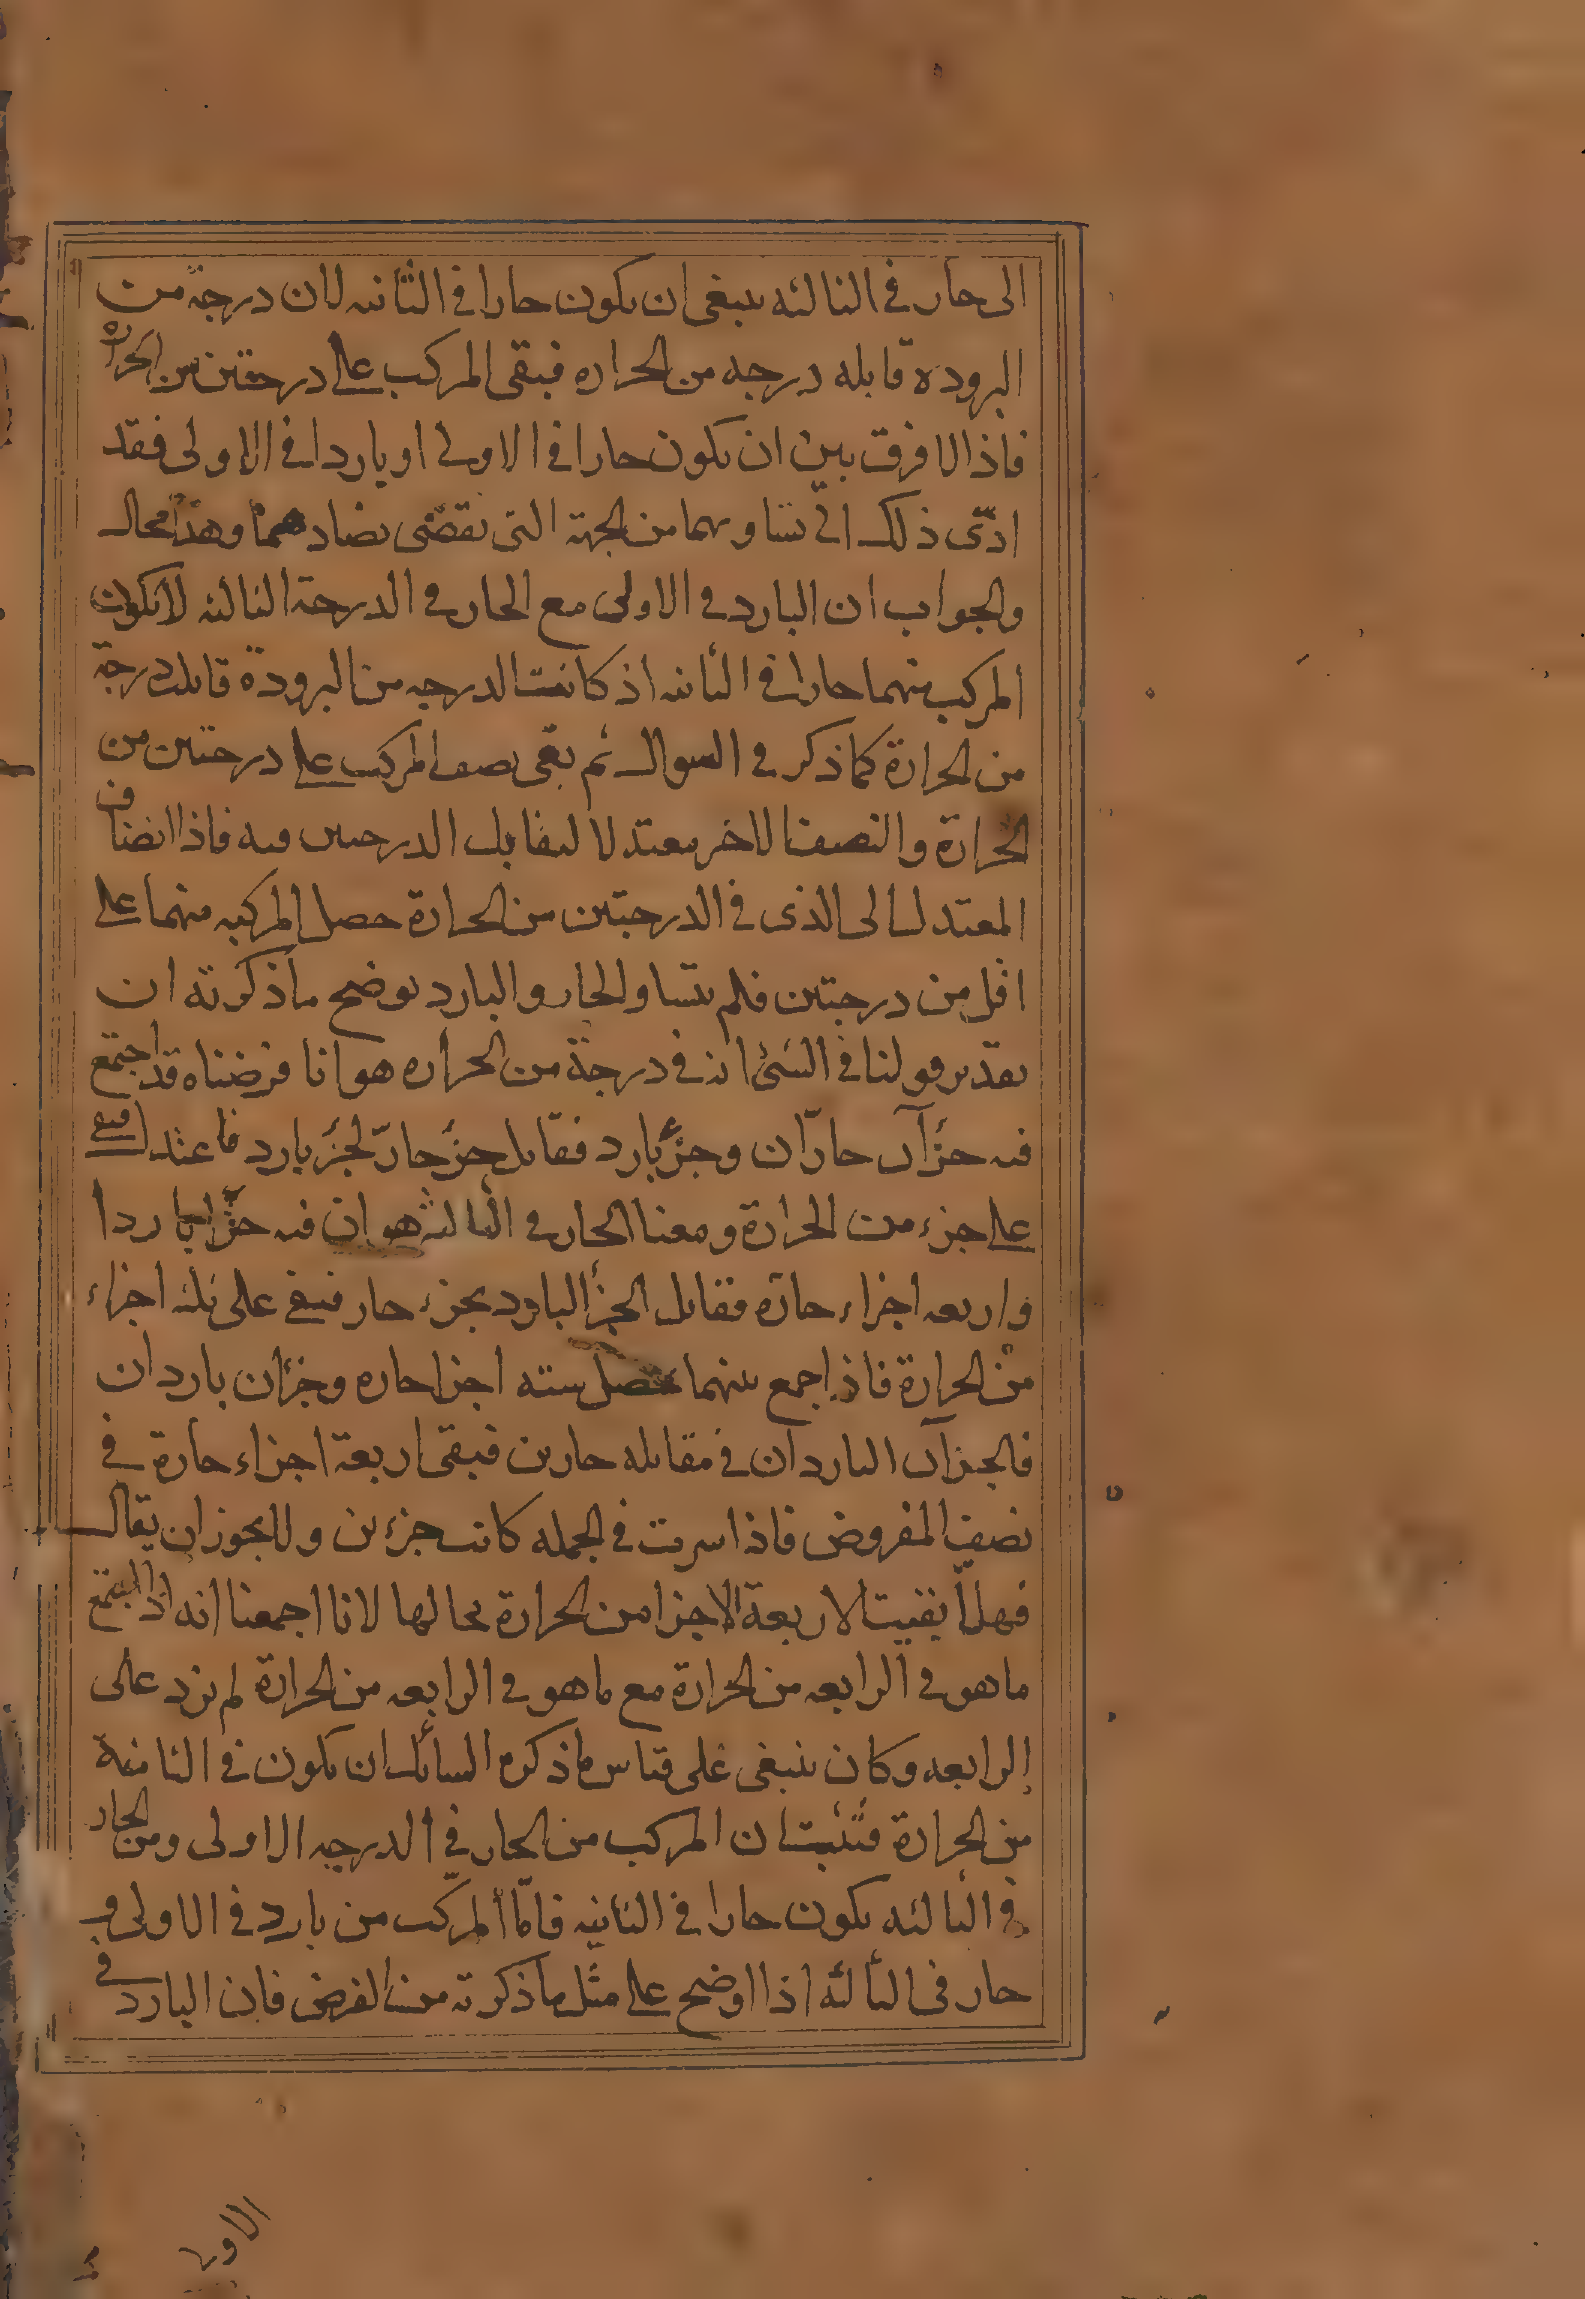 الى حار في الثالثه ينبغى ان يكون حارا في الثانيه لان درجة من
البرودة قابله درجه من الحراره فبقى المركب على درجتين من الحرارة
فاذا لا فرق بين ان يكون حارا في الاولى او باردا في الاولى فقد
ادّى ذلك الى تساويهما من الجهة التي تقتضى تضادهما وهذا محال
والجواب ان البارد في الاولى مع الحار في الدرجة الثالثه لا يكون
المركب منهما حارا في الثانيه اذ كانت الدرجه من البرودة قابلت درجة
من الحرارة كما ذكر في السوال ثم بقى نصف المركب على درجتين من
الحرارة والنصف الاخر معتدلا لتقابل الدرجتين فيه فاذا اضفنا
المعتدل الى الذى في الدرجتين من الحرارة حصل المركب منهما على
اقل من درجتين فلم يتساو الحار والبارد يوضح ما ذكرته ان
تقدير قولنا في الشئ انه في درجة من الحراره هو انا فرضناه قد اجتمع
فيه جزآن حارّان وجزؤ بارد فقابل جزؤ حارّ لجزؤ بارد فاعتدلا فبقى
على جزء من الحرارة ومعنا الحار في الثالثه هو ان فيه جزأ باردا
واربعه اجزاء حارّه فقابل الجزأ البارد بجزء حار فبقى على ثلثه اجزاء
من الحرارة فاذا جمع بينهما حصل سته اجزا حاره وجزان باردان
فالجزآن الباردان في مقابله حارين فبقى اربعة اجزاء حارة في
نصف المفروض فاذا سرت في الجمله كانت جزءين ولا يجوز ان يقال
فهلّا بقيت الاربعة الاجزا من الحرارة بحالها لانا اجمعنا انه اذا اجتمع
ما هو في الرابعه من الحرارة مع ما هو في الرابعه من الحرارة لم يزد على
الرابعه وكان ينبغى على قياس ما ذكره السائل ان يكون في الثامنة
من الحرارة فثبت ان المركب من الحار في الدرجه الاولى ومن الحار
في الثالثه يكون حارا في الثانيه فامّا المركب من بارد في الاولى و
حار في الثالثه اذا اوضح على مثل ما ذكرته من الفرض فان البارد في
الاولى